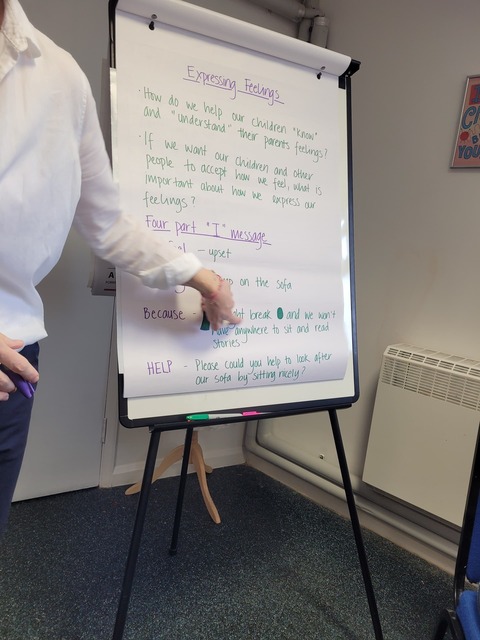 Expressing Feelings
· How do we help our children "know"
and "understand" their parents feelings?
· If we want our children and other
people to accept how we feel, what is
important about how we express our
feelings?
Four part "I" message
- upset
on the sofa
Because - break and we won't
have anywhere to sit and read
stories
HELP - Please could you help to look after
our sofa by sitting nicely?